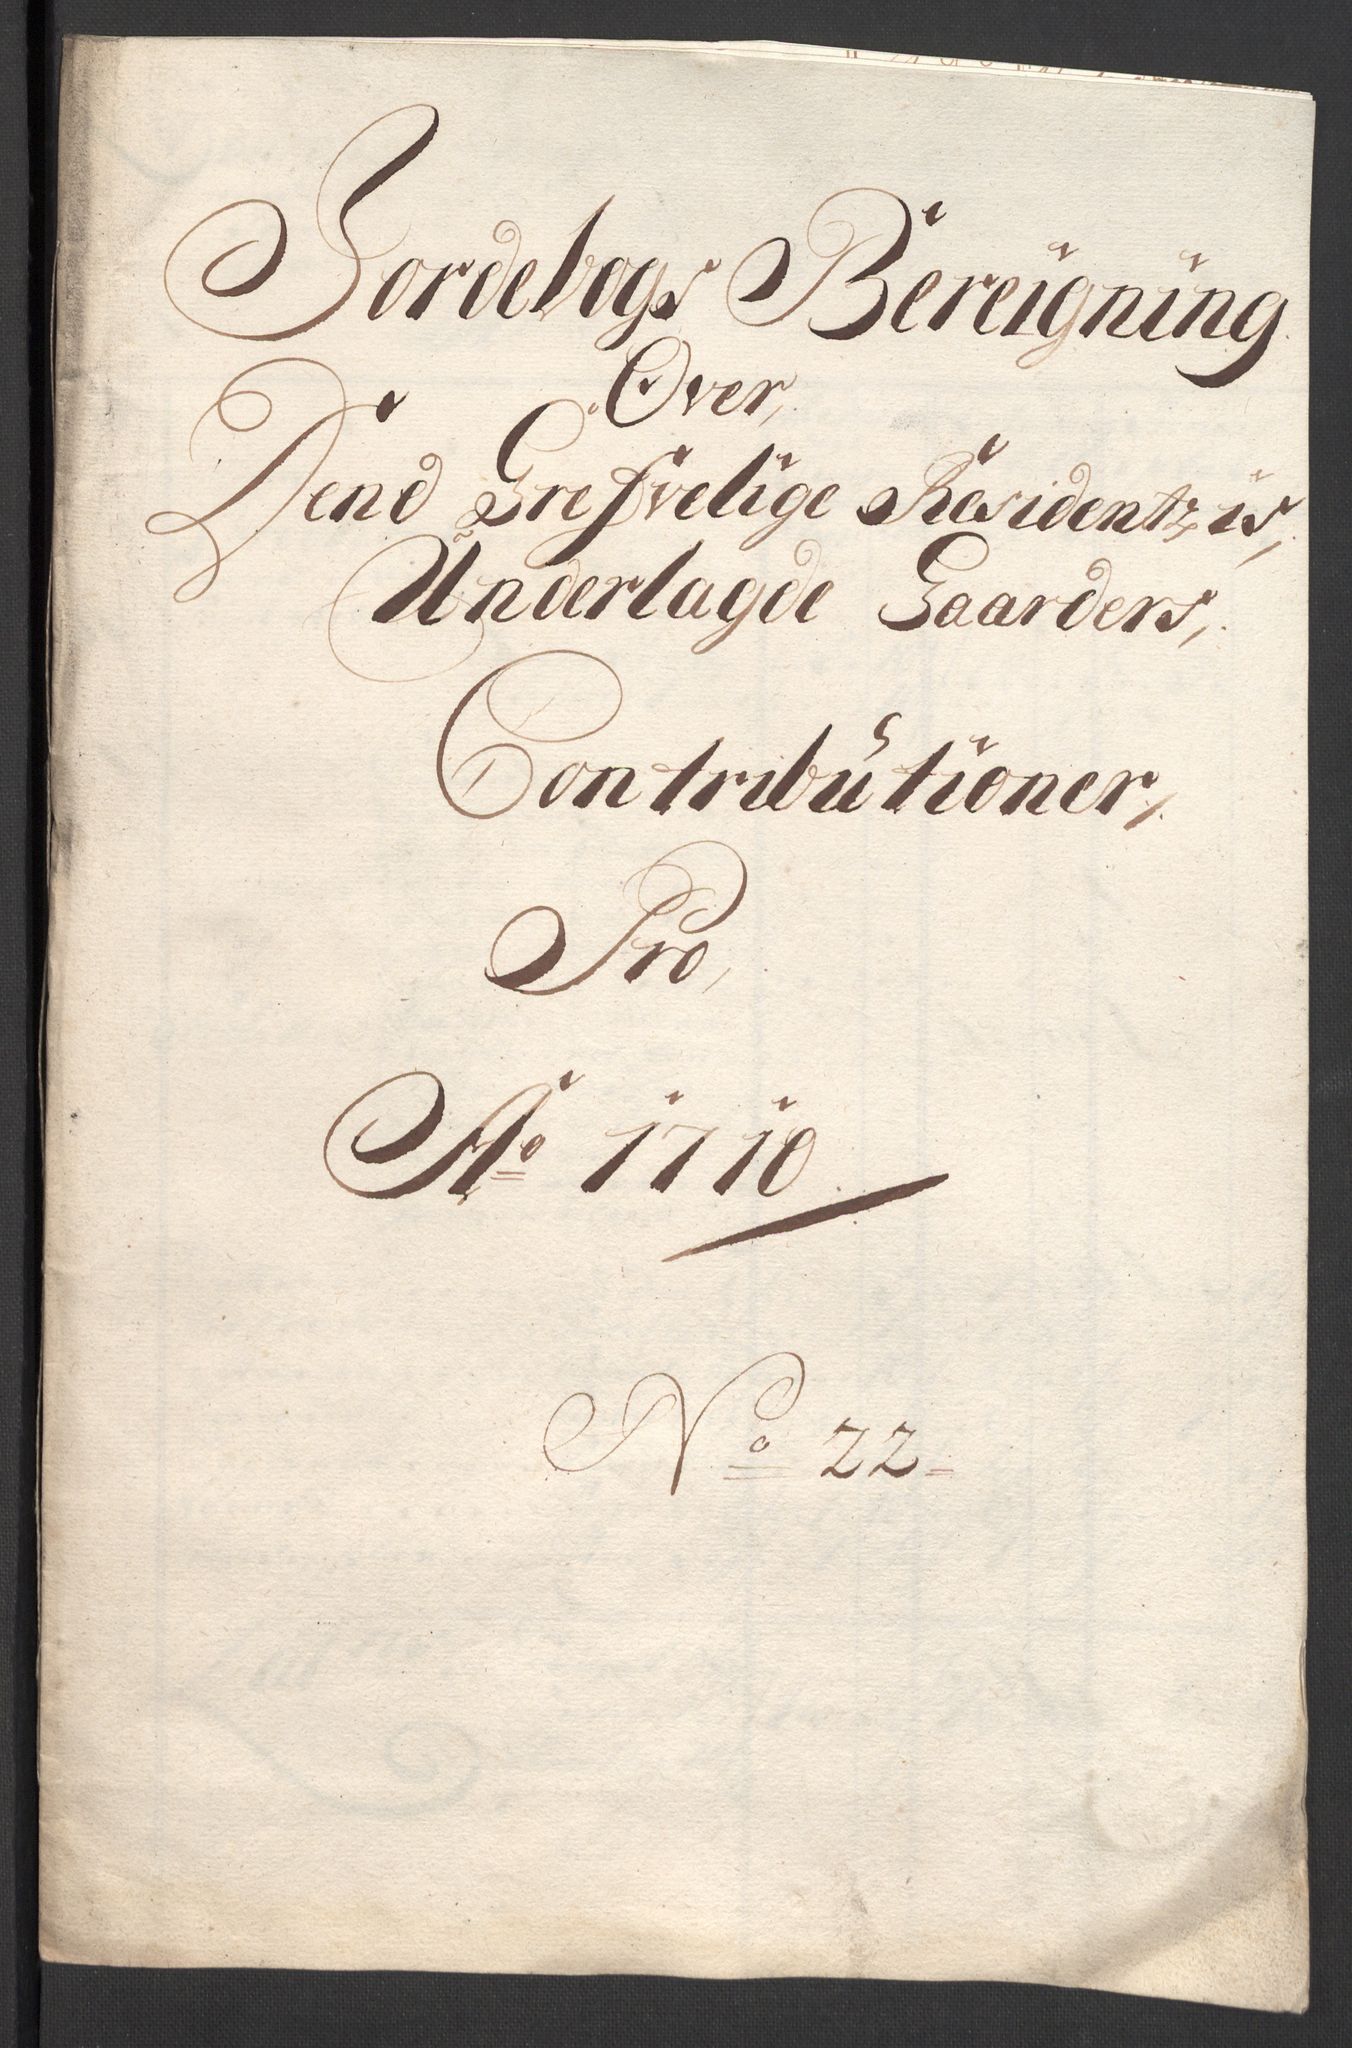 Jordebogs Bereigning
Over,
Dend Grefvelige Residentz is,
Underlagde Gaarders,
Contributioner,
Pro,
Ao 1710
No 22